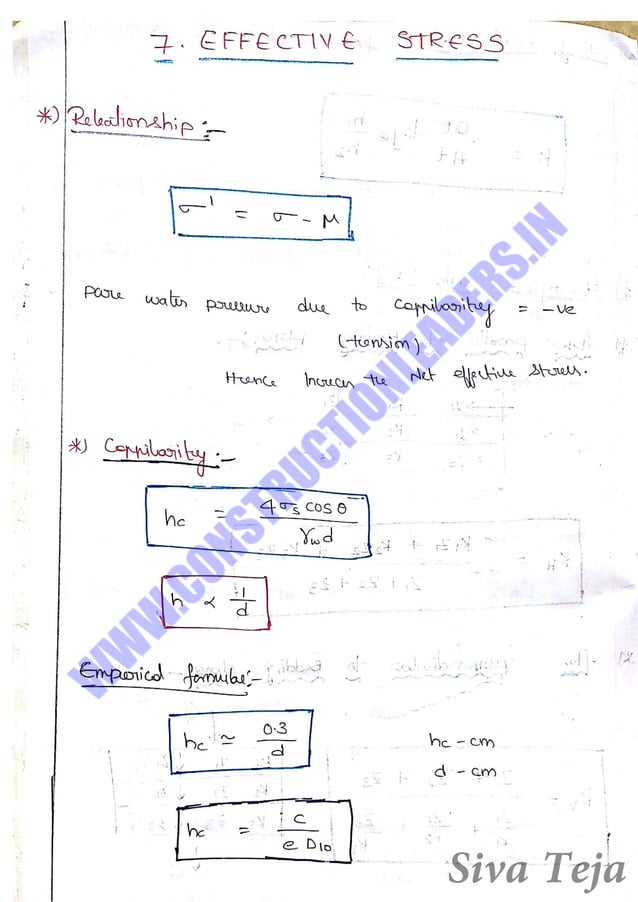 7. EFFECTIVE STRESS
*) Releationship :-
σ' = σ - μ
pore water pressure due to cappilarity = -ve
(tension)
Hence Increas the Net effective stress.
*) Cappilarity :-
hc = 4σs cos θ / γw d
h ∝ 1 / d
Emperical formulae:-
hc ≃ 0.3 / d
hc - cm
d - cm
hc = c / e D10
WWW.CONSTRUCTIONLEADERS.IN
Siva Teja